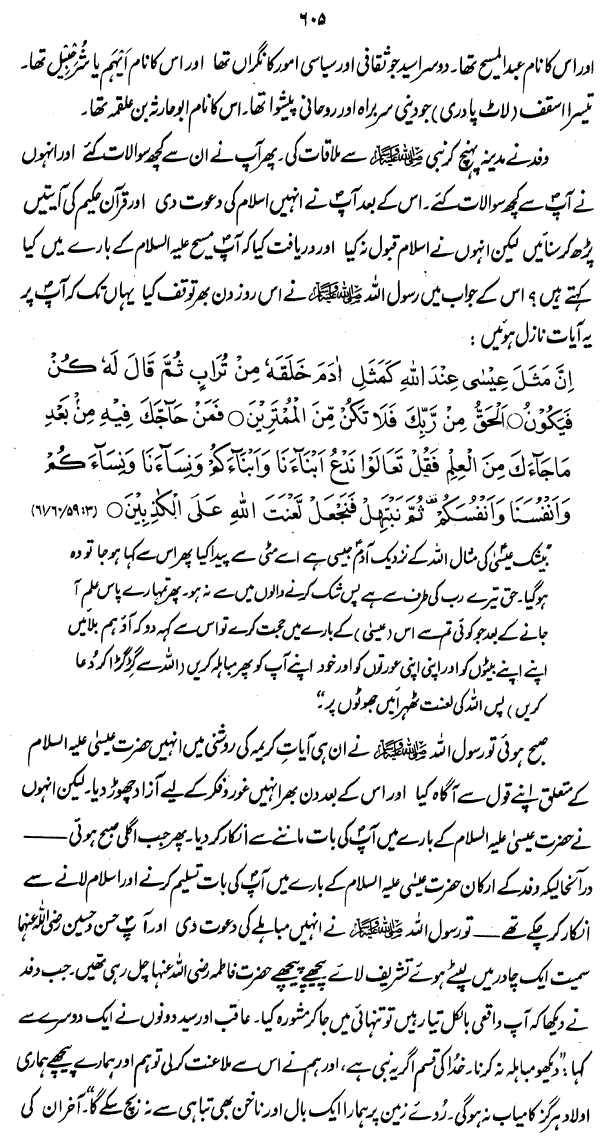 ۶۰۵
اور اس کا نام عبدالمسیح تھا۔ دوسرا سید جو ثقافتی اور سیاسی امور کا نگراں تھا اور اس کا نام اَیْہَم یا شُرَحْبِیْل تھا۔
تیسرا اسقف (لاٹ پادری) جو دینی سربراہ اور روحانی پیشوا تھا۔ اس کا نام ابو حارثہ بن علقمہ تھا۔
وفد نے مدینہ پہنچ کر نبی ﷺ سے ملاقات کی۔ پھر آپ نے ان سے کچھ سوالات کئے اور انہوں
نے آپؐ سے کچھ سوالات کئے۔ اس کے بعد آپؐ نے انہیں اسلام کی دعوت دی اور قرآن حکیم کی آیتیں
پڑھ کر سنائیں لیکن انہوں نے اسلام قبول نہ کیا اور دریافت کیا کہ آپؐ مسیح علیہ السلام کے بارے میں کیا
کہتے ہیں؟ اس کے جواب میں رسول اللہ ﷺ نے اس روز دن بھر توقف کیا یہاں تک کہ آپؐ پر
یہ آیات نازل ہوئیں:
اِنَّ مَثَلَ عِيْسٰى عِنْدَ اللّٰهِ كَمَثَلِ اٰدَمَ خَلَقَهٗ مِنْ تُرَابٍ ثُمَّ قَالَ لَهٗ كُنْ
فَيَكُوْنُ○ اَلْحَقُّ مِنْ رَّبِّكَ فَلَا تَكُنْ مِّنَ الْمُمْتَرِيْنَ○ فَمَنْ حَآجَّكَ فِيْهِ مِنْۢ بَعْدِ
مَا جَآءَكَ مِنَ الْعِلْمِ فَقُلْ تَعَالَوْا نَدْعُ اَبْنَآءَنَا وَاَبْنَآءَكُمْ وَنِسَآءَنَا وَنِسَآءَكُمْ
وَاَنْفُسَنَا وَاَنْفُسَكُمْ ۣ ثُمَّ نَبْتَهِلْ فَنَجْعَلْ لَّعْنَتَ اللّٰهِ عَلَى الْكٰذِبِيْنَ○ (۳: ۵۹/۶۰/۶۱)
”بیشک عیسیٰؑ کی مثال اللہ کے نزدیک آدمؑ جیسی ہے اسے مٹی سے پیدا کیا پھر اس سے کہا ہو جا تو وہ
ہو گیا۔ حق تیرے رب کی طرف سے ہے پس شک کرنے والوں میں سے نہ ہو۔ پھر تمہارے پاس علم آ
جانے کے بعد جو کوئی تم سے اس (عیسیٰ) کے بارے میں حجت کرے تو اس سے کہہ دو کہ آؤ ہم بلائیں
اپنے اپنے بیٹوں کو اور اپنی اپنی عورتوں کو اور خود اپنے آپ کو پھر مباہلہ کریں (اللہ سے گڑگڑا کر دُعا
کریں) پس اللہ کی لعنت ٹھہرائیں جھوٹوں پر۔“
صبح ہوئی تو رسول اللہ ﷺ نے ان ہی آیاتِ کریمہ کی روشنی میں انہیں حضرت عیسیٰ علیہ السلام
کے متعلق اپنے قول سے آگاہ کیا اور اس کے بعد دن بھر انہیں غور و فکر کے لیے آزاد چھوڑ دیا۔ لیکن انہوں
نے حضرت عیسیٰ علیہ السلام کے بارے میں آپؐ کی بات ماننے سے انکار کر دیا۔ پھر جب اگلی صبح ہوئی ——
درآنحالیکہ وفد کے ارکان حضرت عیسیٰ علیہ السلام کے بارے میں آپؐ کی بات تسلیم کرنے اور اسلام لانے سے
انکار کر چکے تھے —— تو رسول اللہ ﷺ نے انہیں مباہلے کی دعوت دی اور آپؐ حسن و حسین رضی اللہ عنہما
سمیت ایک چادر میں لپٹے ہوئے تشریف لائے پیچھے پیچھے حضرت فاطمہ رضی اللہ عنہا چل رہی تھیں۔ جب وفد
نے دیکھا کہ آپ واقعی بالکل تیار ہیں تو تنہائی میں جا کر مشورہ کیا۔ عاقب اور سید دونوں نے ایک دوسرے سے
کہا: ”دیکھو مباہلہ نہ کرنا۔ خدا کی قسم اگر یہ نبی ہے، اور ہم نے اس سے ملاعنت کر لی تو ہم اور ہمارے پیچھے ہماری
اولاد ہرگز کامیاب نہ ہوگی۔ رُوئے زمین پر ہمارا ایک بال اور ناخن بھی تباہی سے نہ بچ سکے گا“۔ آخر ان کی